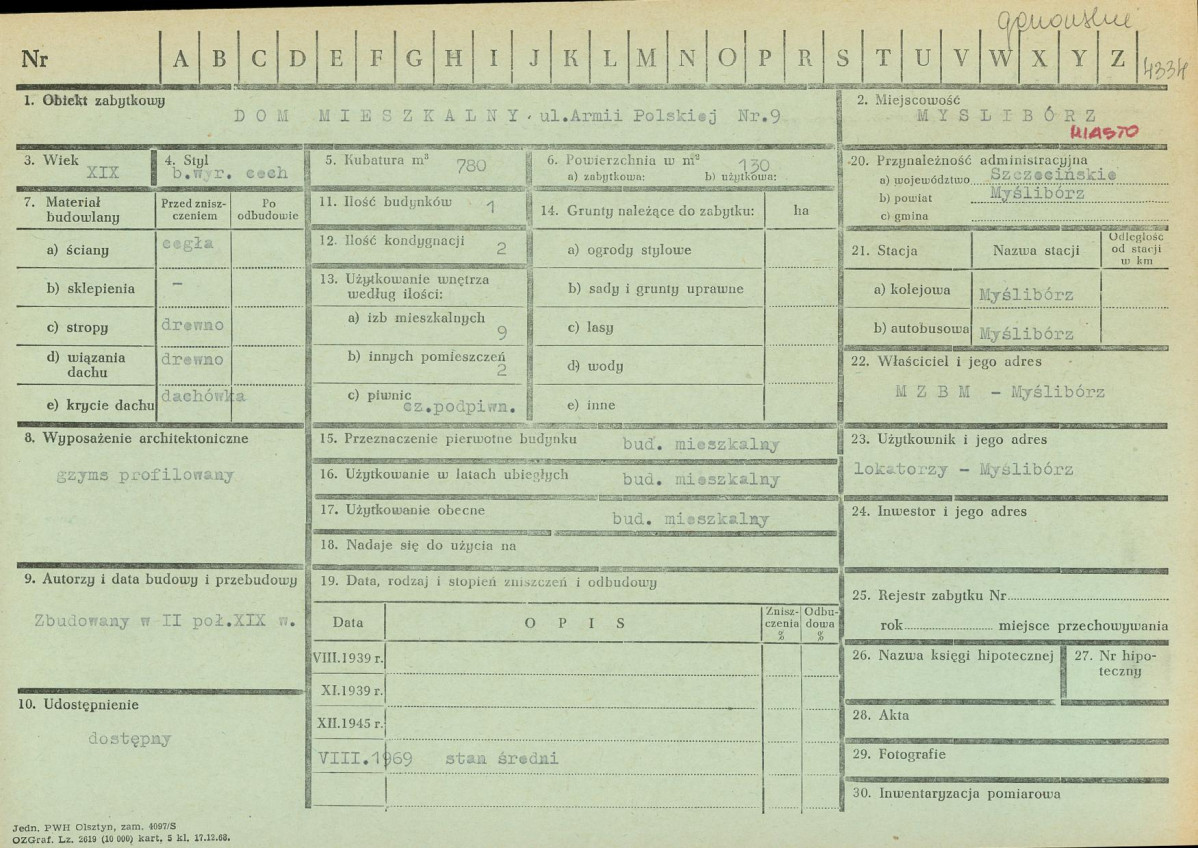 4334
Nr A B C D E F G H I J K L M N O P R S T U V W X Y Z
1. Obiekt zabytkowy
D O M M I E S Z K A L N Y ul.Armii Polskiej Nr.9
2. Miejscowość
M Y Ś L I B Ó R Z
MIASTO
3. Wiek
XIX
4. Styl
b.wyr. cech
5. Kubatura m³ 780
6. Powierzchnia w m² 130
a) zabytkowa: b) użytkowa:
20. Przynależność administracyjna
a) województwo Szczecińskie
b) powiat Myślibórz
c) gmina
7. Materiał budowlany
Przed zniszczeniem
Po odbudowie
a) ściany cegła
b) sklepienia –
c) stropy drewno
d) wiązania dachu drewno
e) krycie dachu dachówka
11. Ilość budynków 1
12. Ilość kondygnacji 2
13. Użytkowanie wnętrza
według ilości:
a) izb mieszkalnych 9
b) innych pomieszczeń 2
c) piwnic cz.podpiwn.
14. Grunty należące do zabytku: ha
a) ogrody stylowe
b) sady i grunty uprawne
c) lasy
d) wody
e) inne
21. Stacja Nazwa stacji
Odległość
od stacji
w km
a) kolejowa Myślibórz
b) autobusowa Myślibórz
22. Właściciel i jego adres
M Z B M – Myślibórz
8. Wyposażenie architektoniczne
gzyms profilowany
15. Przeznaczenie pierwotne budynku bud. mieszkalny
16. Użytkowanie w latach ubiegłych bud. mieszkalny
17. Użytkowanie obecne bud. mieszkalny
18. Nadaje się do użycia na
23. Użytkownik i jego adres
lokatorzy – Myślibórz
24. Inwestor i jego adres
9. Autorzy i data budowy i przebudowy
Zbudowany w II poł.XIX w.
10. Udostępnienie
dostępny
19. Data, rodzaj i stopień zniszczeń i odbudowy
Data O P I S
Zniszczenia %
Odbudowa %
VIII.1939 r.
XI.1939 r.
XII.1945 r.
VIII.1969 stan średni
25. Rejestr zabytku Nr
rok miejsce przechowywania
26. Nazwa księgi hipotecznej
27. Nr hipoteczny
28. Akta
29. Fotografie
30. Inwentaryzacja pomiarowa
Jedn. PWH Olsztyn, zam. 4097/S
OZGraf. Lz. 2619 (10 000) kart. 5 kl. 17.12.68.